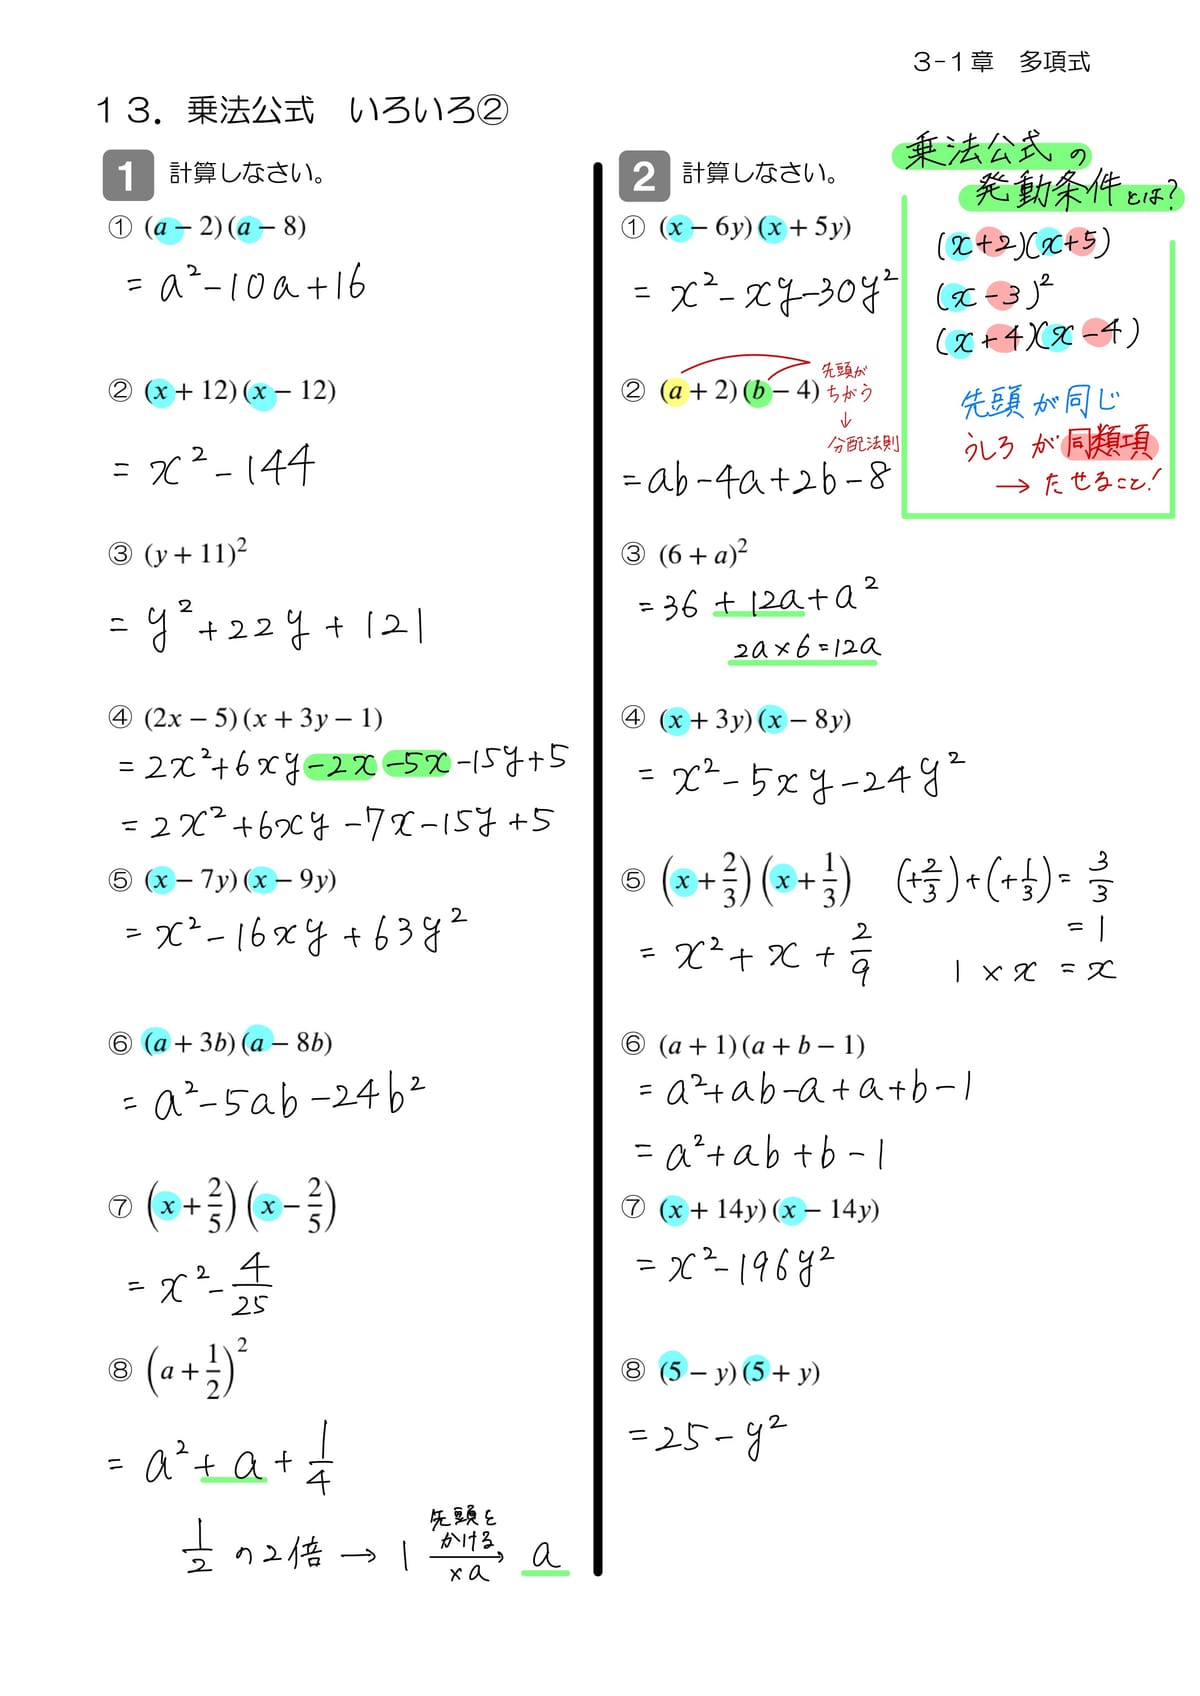 3-1章　多項式
１３．乗法公式　いろいろ②
1 計算しなさい。
① (a − 2)(a − 8)
= a² − 10a + 16
② (x + 12)(x − 12)
= x² − 144
③ (y + 11)²
= y² + 22y + 121
④ (2x − 5)(x + 3y − 1)
= 2x² + 6xy − 2x − 5x − 15y + 5
= 2x² + 6xy − 7x − 15y + 5
⑤ (x − 7y)(x − 9y)
= x² − 16xy + 63y²
⑥ (a + 3b)(a − 8b)
= a² − 5ab − 24b²
⑦ (x + 2/5)(x − 2/5)
= x² − 4/25
⑧ (a + 1/2)²
= a² + a + 1/4
1/2 の2倍 → 1 先頭をかける ×a → a
2 計算しなさい。
① (x − 6y)(x + 5y)
= x² − xy − 30y²
② (a + 2)(b − 4)
先頭が
ちがう
↓
分配法則
= ab − 4a + 2b − 8
③ (6 + a)²
= 36 + 12a + a²
2a × 6 = 12a
④ (x + 3y)(x − 8y)
= x² − 5xy − 24y²
⑤ (x + 2/3)(x + 1/3)
(+2/3) + (+1/3) = 3/3
= 1
1 × x = x
= x² + x + 2/9
⑥ (a + 1)(a + b − 1)
= a² + ab − a + a + b − 1
= a² + ab + b − 1
⑦ (x + 14y)(x − 14y)
= x² − 196y²
⑧ (5 − y)(5 + y)
= 25 − y²
乗法公式の
発動条件とは?
(x + 2)(x + 5)
(x − 3)²
(x + 4)(x − 4)
先頭が同じ
うしろが同類項
→ たせること!